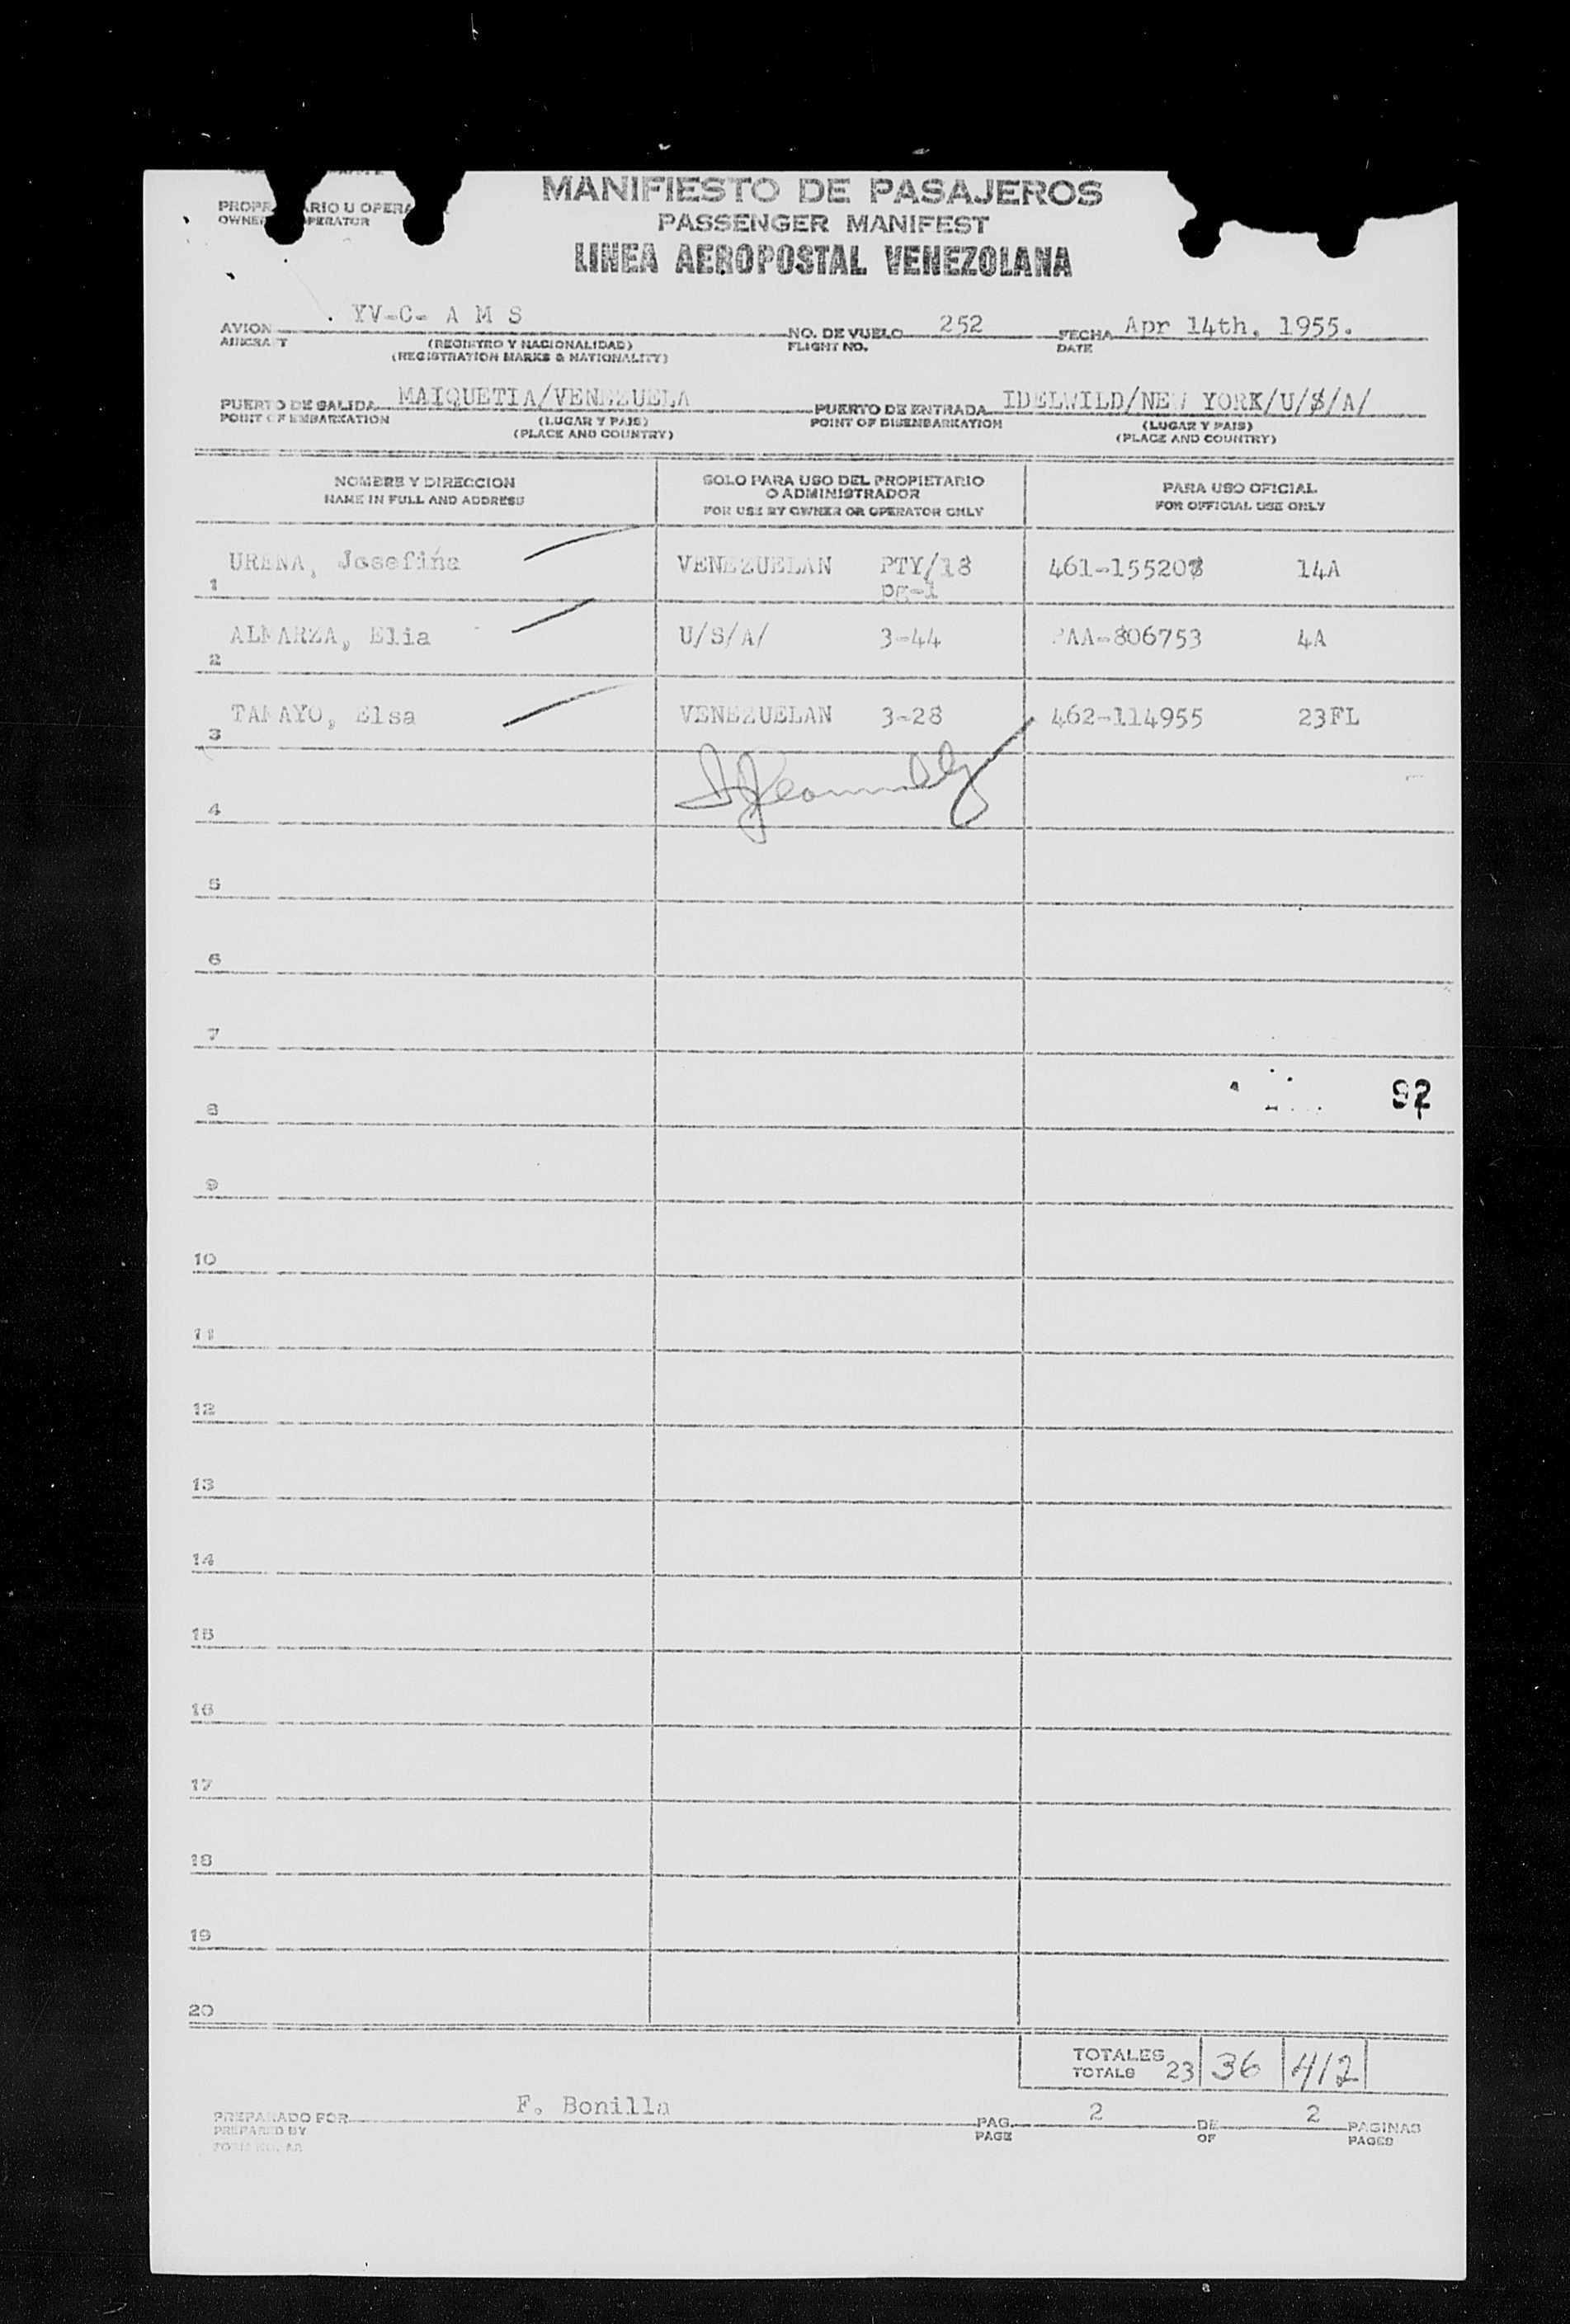 MANIFIESTO DE PASAJEROS
PASSENGER MANIFEST
LINEA AEROPOSTAL VENEZOLANA
AVION YV-C- A M S NO. DE VUELO 252 FECHA Apr 14th, 1955.
AIRCRAFT (REGISTRO Y NACIONALIDAD) FLIGHT NO. DATE
(REGISTRATION MARKS & NATIONALITY)
PUERTO DE SALIDA MAIQUETIA/VENEZUELA PUERTO DE ENTRADA IDELWILD/NEW YORK/U/S/A/
POINT OF EMBARKATION (LUGAR Y PAIS) POINT OF DISEMBARKATION (LUGAR Y PAIS)
(PLACE AND COUNTRY) (PLACE AND COUNTRY)
NOMBRE Y DIRECCION SOLO PARA USO DEL PROPIETARIO O ADMINISTRADOR PARA USO OFICIAL
NAME IN FULL AND ADDRESS FOR USE BY OWNER OR OPERATOR ONLY FOR OFFICIAL USE ONLY
1 URENA, Josefina VENEZUELAN PTY/18 461-155208 14A
pg-1
2 ALMARZA, Elia U/S/A/ 3-44 PAA-806753 4A
3 TAMAYO, Elsa VENEZUELAN 3-28 462-114955 23FL
4
5
6
7
8 92
9
10
11
12
13
14
15
16
17
18
19
20
TOTALES
TOTALS 23 36 412
PREPARADO POR F. Bonilla PAG. 2 DE 2 PAGINAS
PREPARED BY PAGE OF PAGES